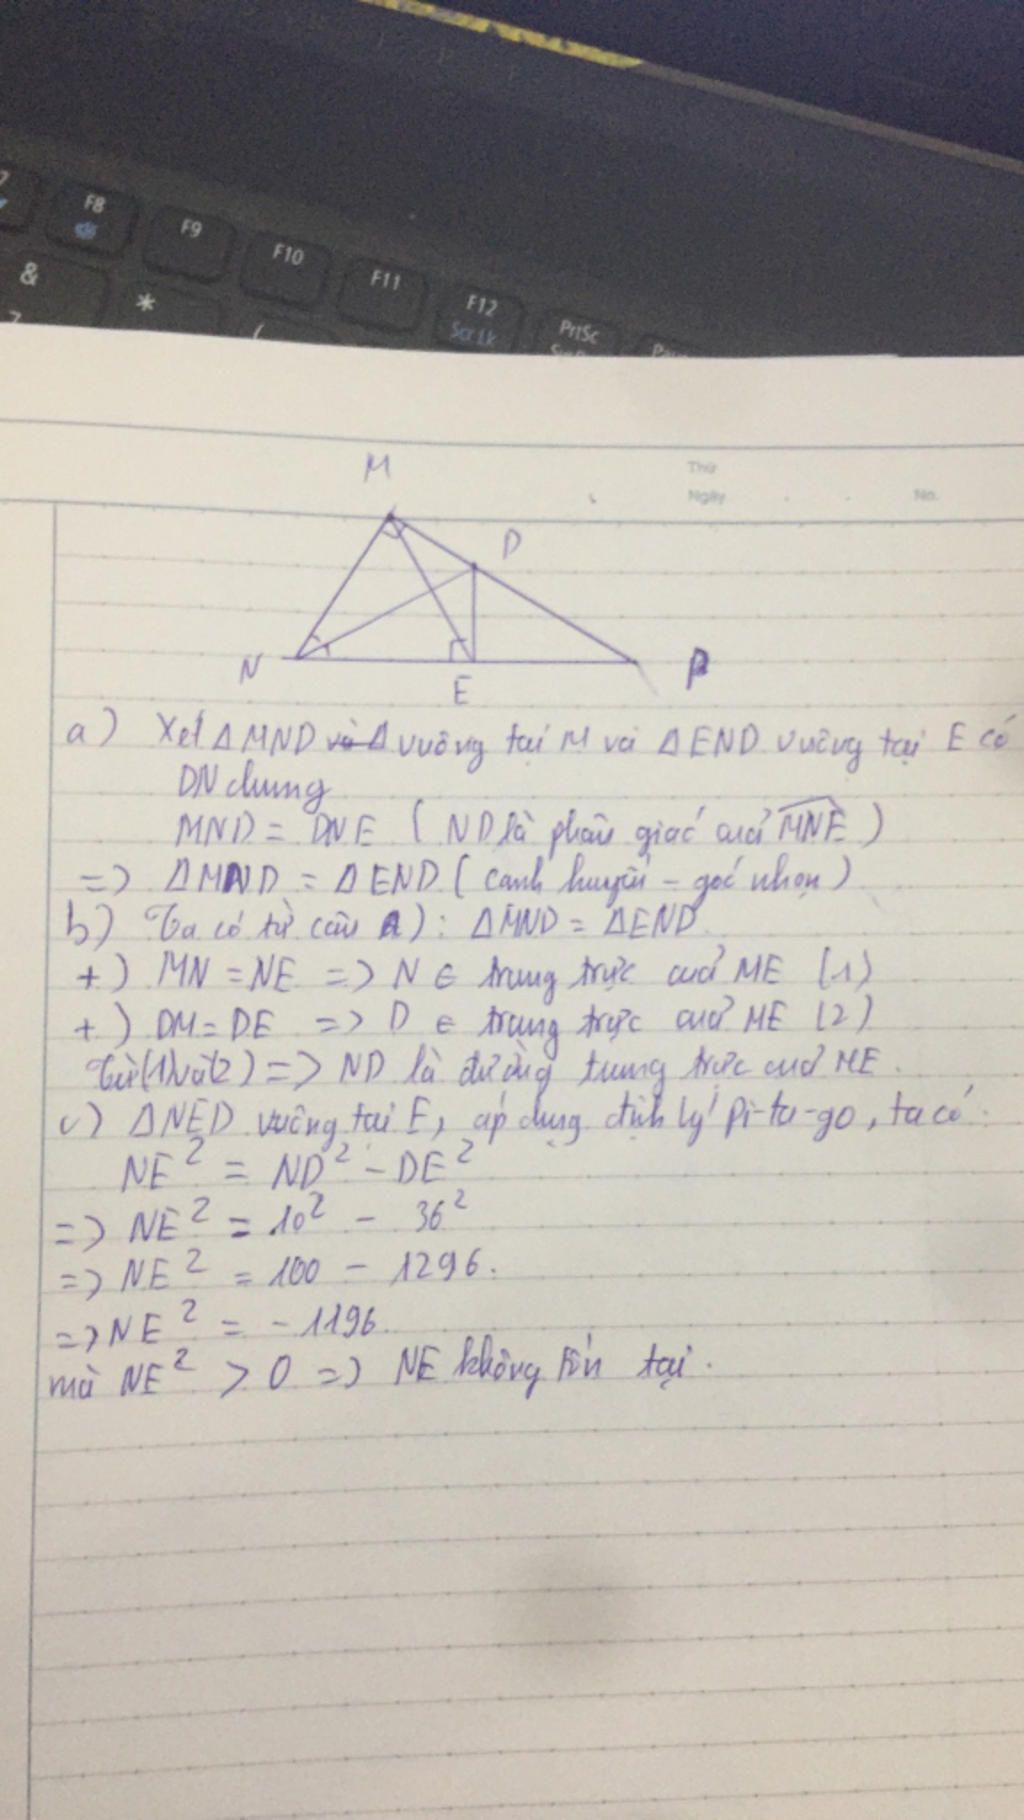 F8
F9
F10
F11
F12
Scr Lk
PrtSc
&
*
(
Thứ
Ngày
No.
M
D
N
E
P
a) Xét ΔMND vuông tại M và ΔEND vuông tại E có
DN chung
MND = DNE (ND là phân giác của MNE)
=> ΔMND = ΔEND (cạnh huyền - góc nhọn)
b) Ta có từ câu a): ΔMND = ΔEND
+) MN = NE => N ∈ trung trực của ME (1)
+) DM = DE => D ∈ trung trực của ME (2)
Từ (1) và (2) => ND là đường trung trực của ME.
c) ΔNED vuông tại E, áp dụng định lý Pi-ta-go, ta có:
NE² = ND² - DE²
=> NE² = 10² - 36²
=> NE² = 100 - 1296.
=> NE² = -1196.
mà NE² > 0 => NE không tồn tại.